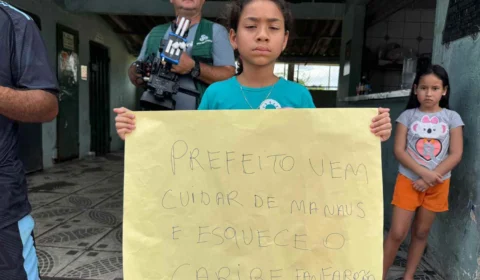 PREFEITO VEM
CUIDAR DE MANAUS
E ESQUECE O
CARIBE